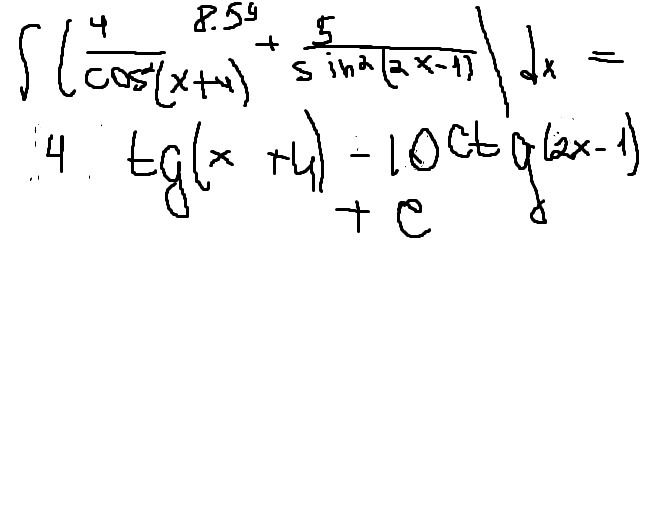 8.54
∫ ( 4/cos²(x+4) + 5/sin²(2x-1) ) dx =
4 tg(x +4) - 10 ctg(2x-1)
+ c